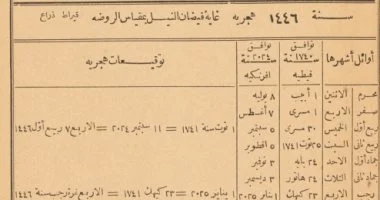 سنة ١٤٤٦ هجريه غاية فيضان النيل بمقياس الروضه قيراط ذراع
أوائل أشهرها توافق ١٧٤٠ سنة قبطيه توافق ٢٠٢٤ سنة افرنكيه توقيعات هجريه
محرم الاثنين ١ أبيب ٨ يوليه
صفر الاربع ١ مسرى ٧ أغسطس
ربيع أول الخميس ٣٠ مسرى ٥ سبتمبر ١ توت سنة ١٧٤١ = ١١ سبتمبر ٢٠٢٤ = الاربع ٧ ربيع أول ١٤٤٦
ربيع ثانى السبت ٢٥ توت ١٧٤١ ٥ اكتوبر
جماد أول الاحد ٢٤ بابه ٣ نوفمبر
جماد ثانى الثلاث ٢٤ هاتور ٣ ديسمبر
رجب الاربع ٢٣ كيهك ١ يناير ٢٠٢٥ ١ يناير ٢٠٢٥ = ٢٣ كيهك ١٧٤١ = الاربع غرة رجب سنة ١٤٤٦